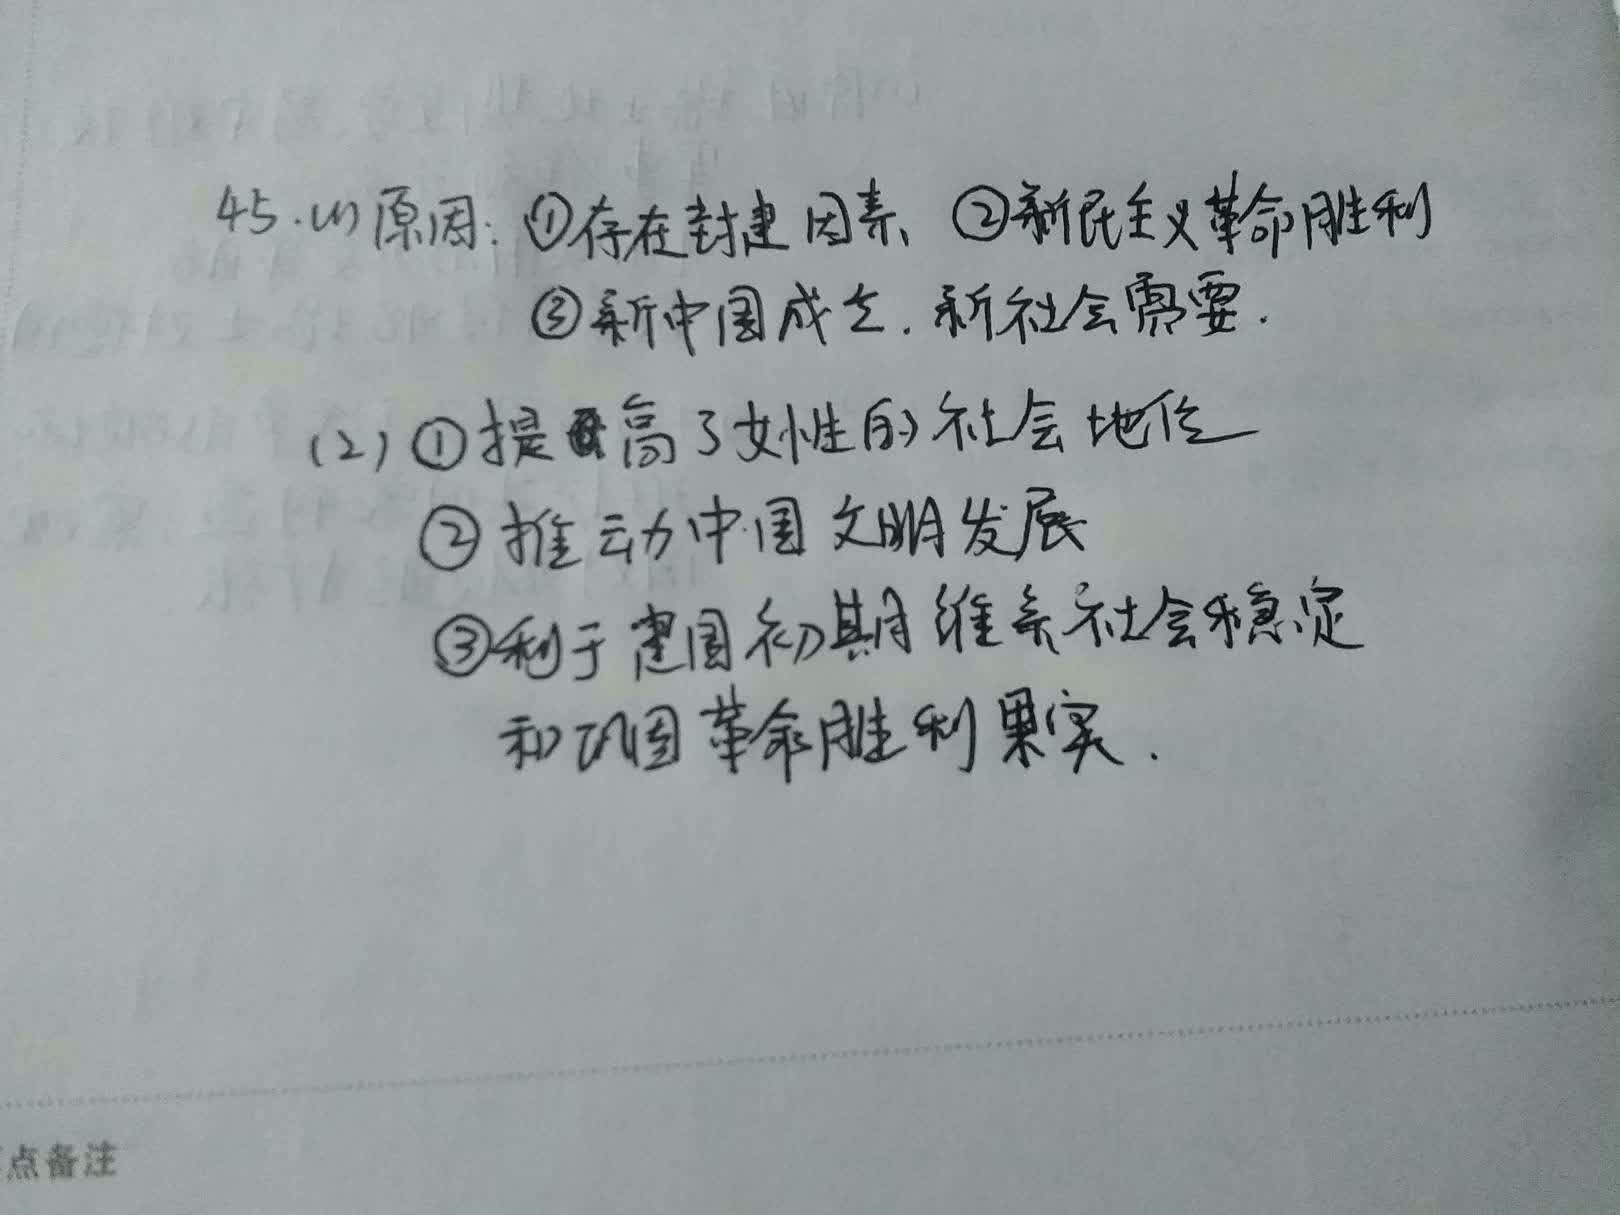 45.(1)原因:①存在封建因素、②新民主义革命胜利
③新中国成立.新社会需要.
(2)①提高了女性的社会地位
②推动中国文明发展
③利于建国初期维系社会稳定
和巩固革命胜利果实.
点备注